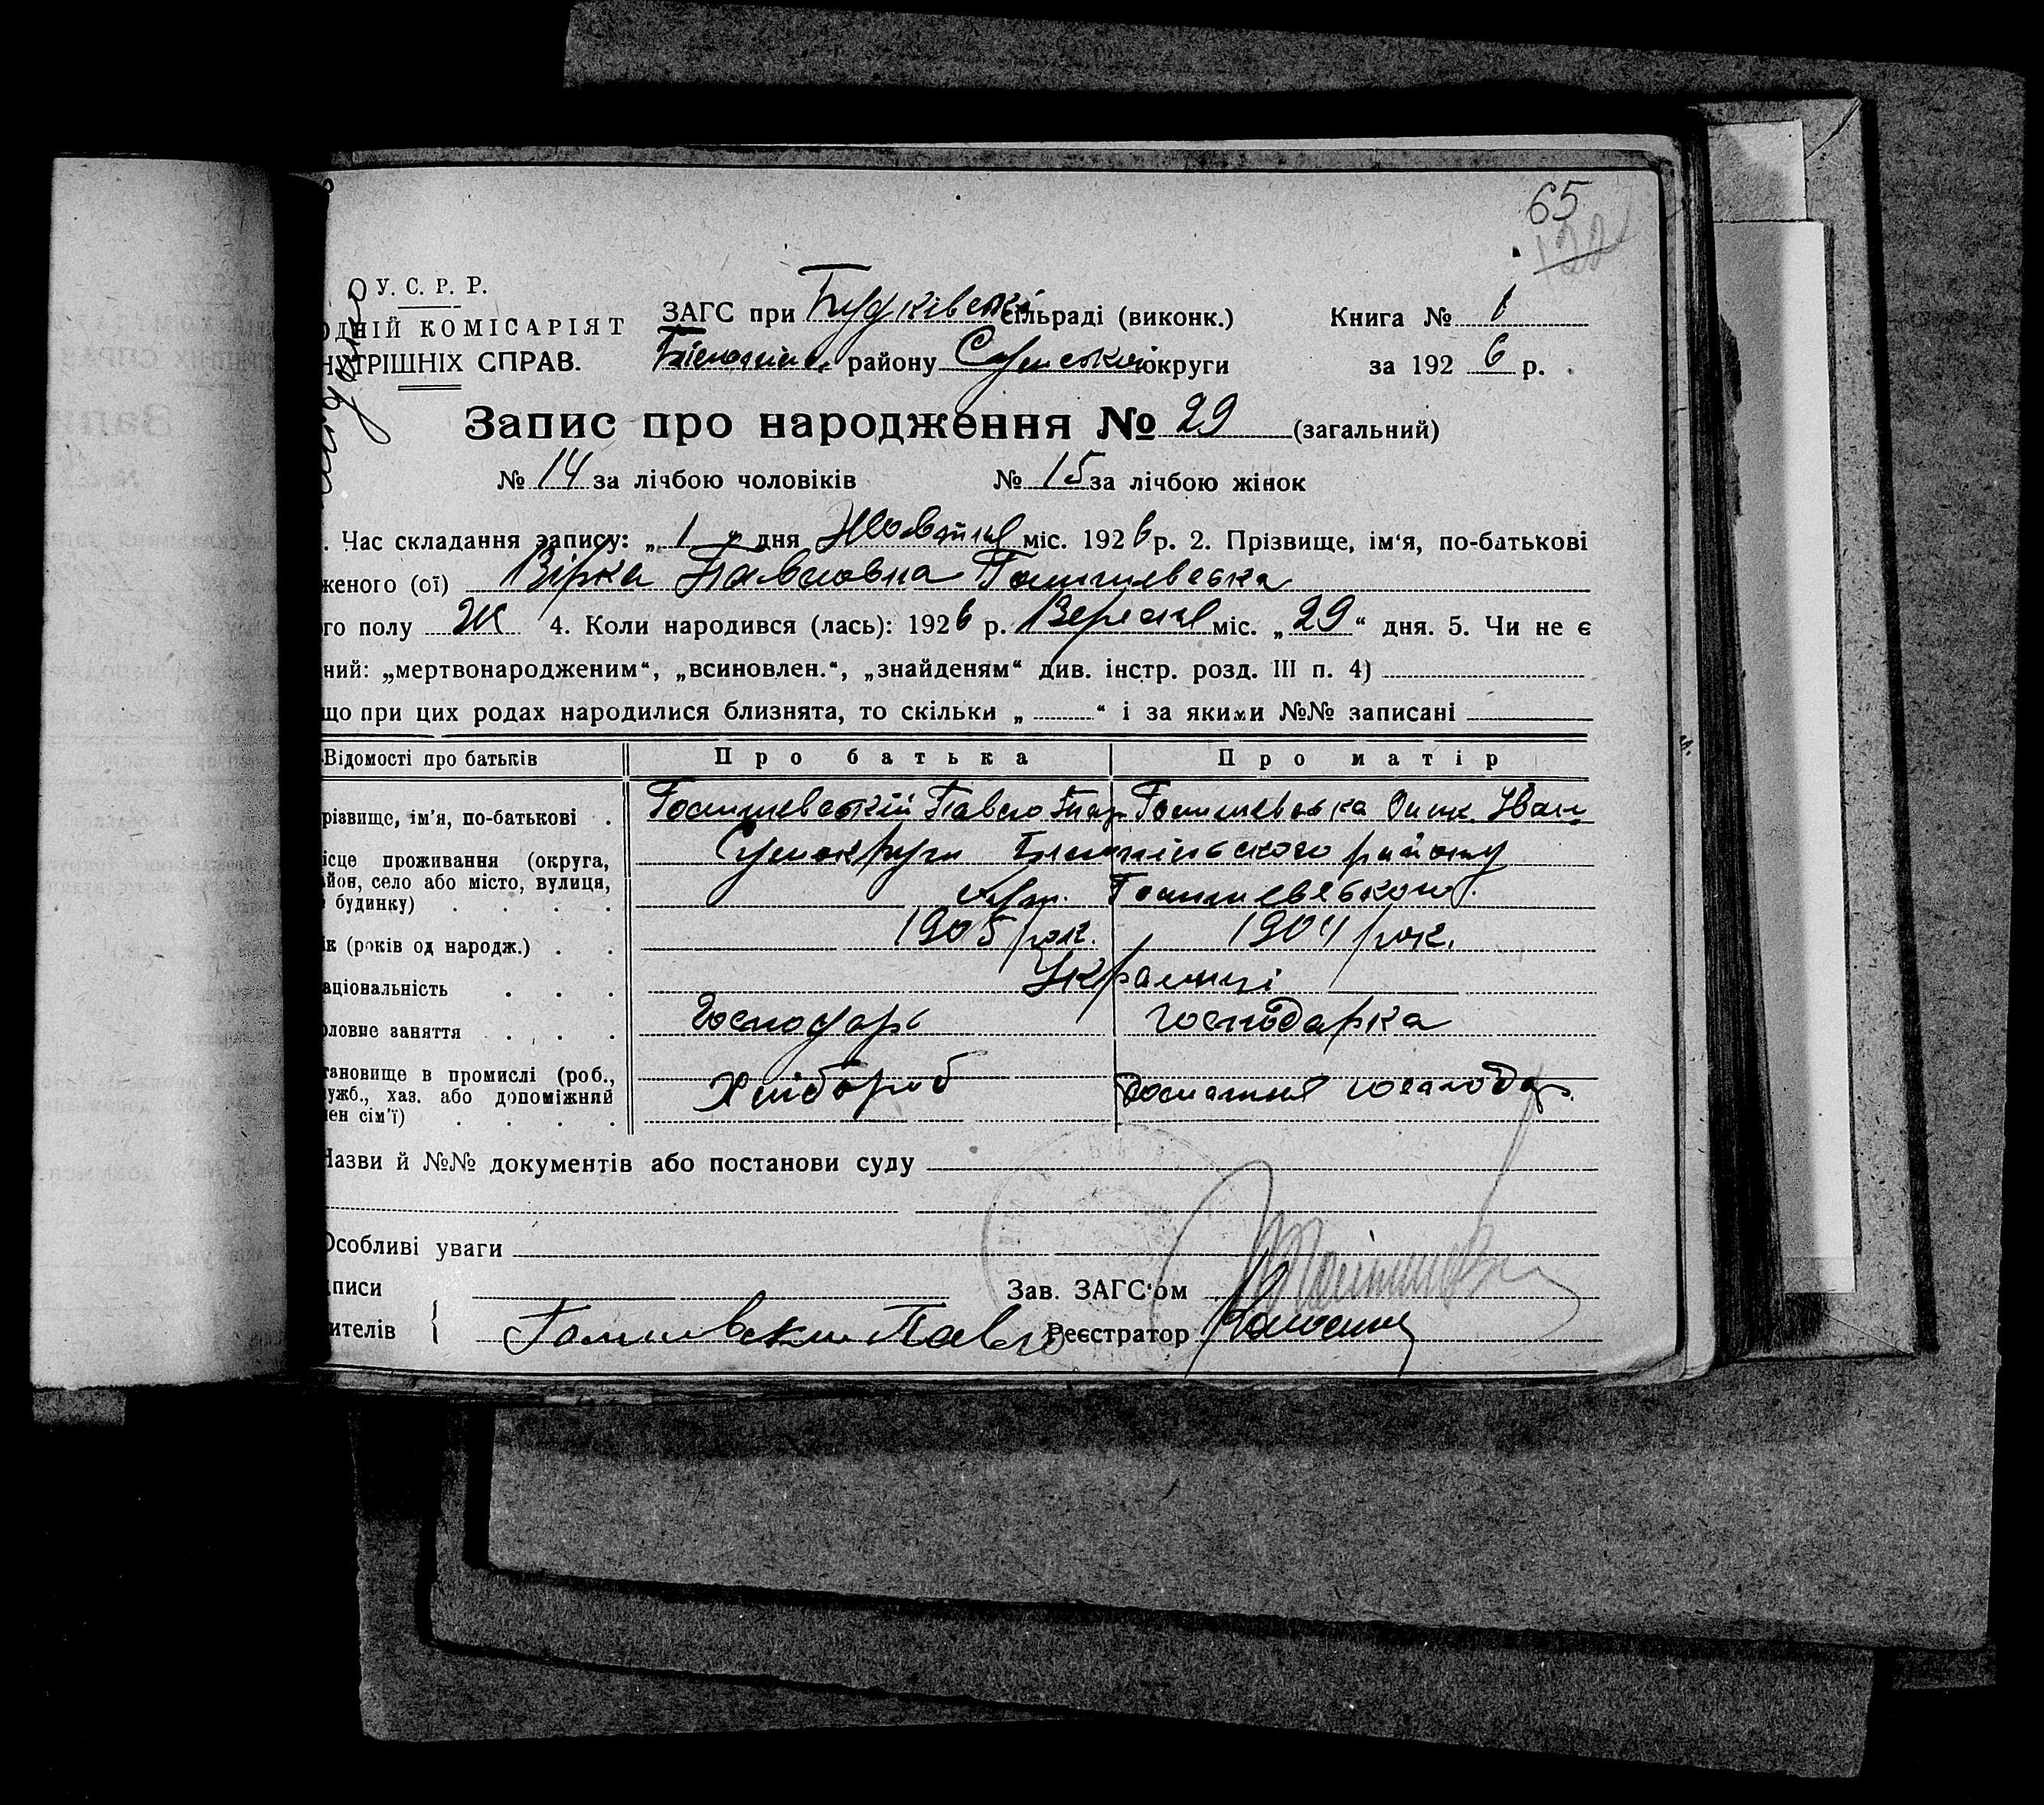 65
122
У. С. Р. Р.
ОДНІЙ КОМІСАРІЯТ
НУТРІШНІХ СПРАВ.
ЗАГС при Будківській сільраді (виконк.)
району Сумської округи
Книга № 1
за 1926 р.
Запис про народження № 29 (загальний)
№ 14 за лічбою чоловіків № 15 за лічбою жінок
. Час складання запису: „ 1 " дня Жовтня міс. 1926 р. 2. Прізвище, ім'я, по-батькові
женого (ої) Вірка Павловна
го полу Ж 4. Коли народився (лась): 1926 р. Вересня міс. „29“ дня. 5. Чи не є
ний: „мертвонародженим“, „всиновлен.“, „знайденям“ див. інстр. розд. III п. 4)
що при цих родах народилися близнята, то скільки „ “ і за якими №№ записані
Відомості про батьків Про батька Про матір
різвище, ім'я, по-батькові . Павло Іван
ісце проживання (округа,
йон, село або місто, вулиця,
будинку) . . . .
Сумокруги району
хут.
ік (років од народж.) . . 1905 рок. 1904 рок.
аціональність . . . Українці
оловне заняття . . . Господарь господарка
тановище в промислі (роб.,
ужб., хаз. або допоміжний
лен сім'ї) . . . .
Хлібороб домашня господар.
Назви й №№ документів або постанови суду
Особливі уваги
дписи Зав. ЗАГС'ом
ителів { Павло Реєстратор